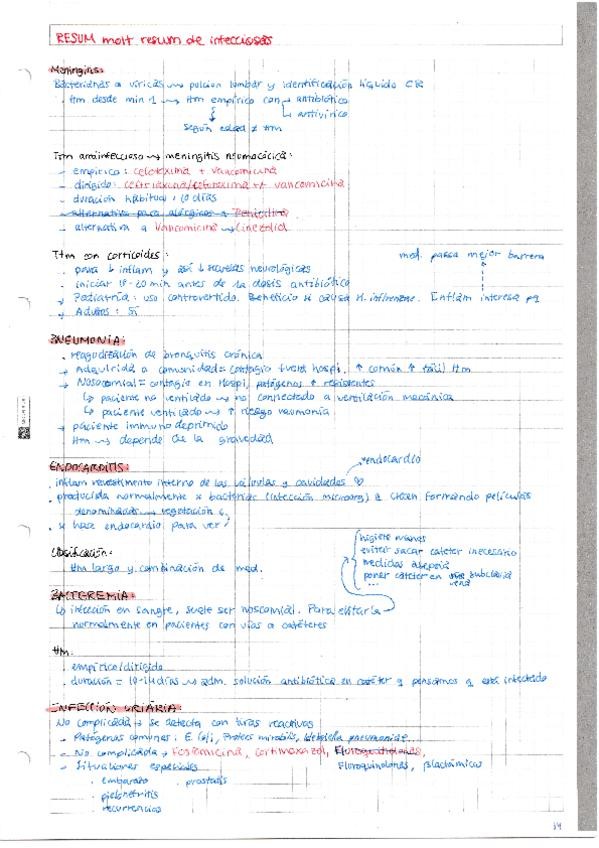 RESUM molt resum de infecciosas
Meningitis:
Bacterianas a víricas → punción lumbar y identificación líquido CR
- ttm desde min 1 → ttm empírico con → antibiótico
→ antivírico
según edad ≠ ttm
Ttm antiinfeccioso → meningitis neumocócica:
- empírico: cefotaxima + vancomicina
- dirigido: ceftriaxona/cefotaxima +/- vancomicina
- duración habitual: 10 días
- alternativa para alérgicos → Penicilina
- alternativa a vancomicina → Linezolid
Ttm con corticoides:
med. passa mejor barrera
- para ↓ inflam y así ↓ secuelas neurológicas
- iniciar 10-20 min antes de la dosis antibiótico
- Pediatría: uso controvertido. Beneficio si causa H. influenzae. Inflam interesa pq
- Adultos: Sí
PNEUMONIA:
- reagudización de bronquitis crónica
- Adquirida a comunidad = contagio fuera hospi. ↑ común ↑ fácil ttm
- Nosocomial = contagio en Hospi, patógenos ↑ resistentes
↳ paciente no ventilado → no connectado a ventilación mecánica
↳ paciente ventilado → ↑ riesgo neumonia
- paciente immunodeprimido
ttm → depende de la gravedad
ENDOCARDITIS:
→ endocardio
- inflam revestimiento interno de las válvulas y cavidades ♡
- producida normalmente x bacterias (infección microorg) q crecen formando películas
denominadas → vegetación
- se hace endocardio para ver
Clasificación:
ttm largo y combinación de med.
higiene manos
evitar sacar catéter inecesario
medidas asepsia
poner catéter en subclavia
vena
...
BACTEREMIA:
↳ infección en sangre, suele ser noscomial. Para evitarla
normalmente en pacientes con vías o catéteres
ttm:
- empírico/dirigido
- duración = 10-14 días → adm. solución antibiótica en catéter q pensamos q está infectado
INFECCIÓN URIÁRIA:
No complicada → se detecta con tiras reactivas
- Patógenos comunes: E. Coli, Proteus mirabilis, klebsiela pneumoniae...
- No complicada → Fosfomicina, cortimoxazol, Fluroquinolonas,
- Situaciones especiales
Floroquinolonas, βlactámicos
- embarazo
- prostatis
- pielonefritis
- recurrencias